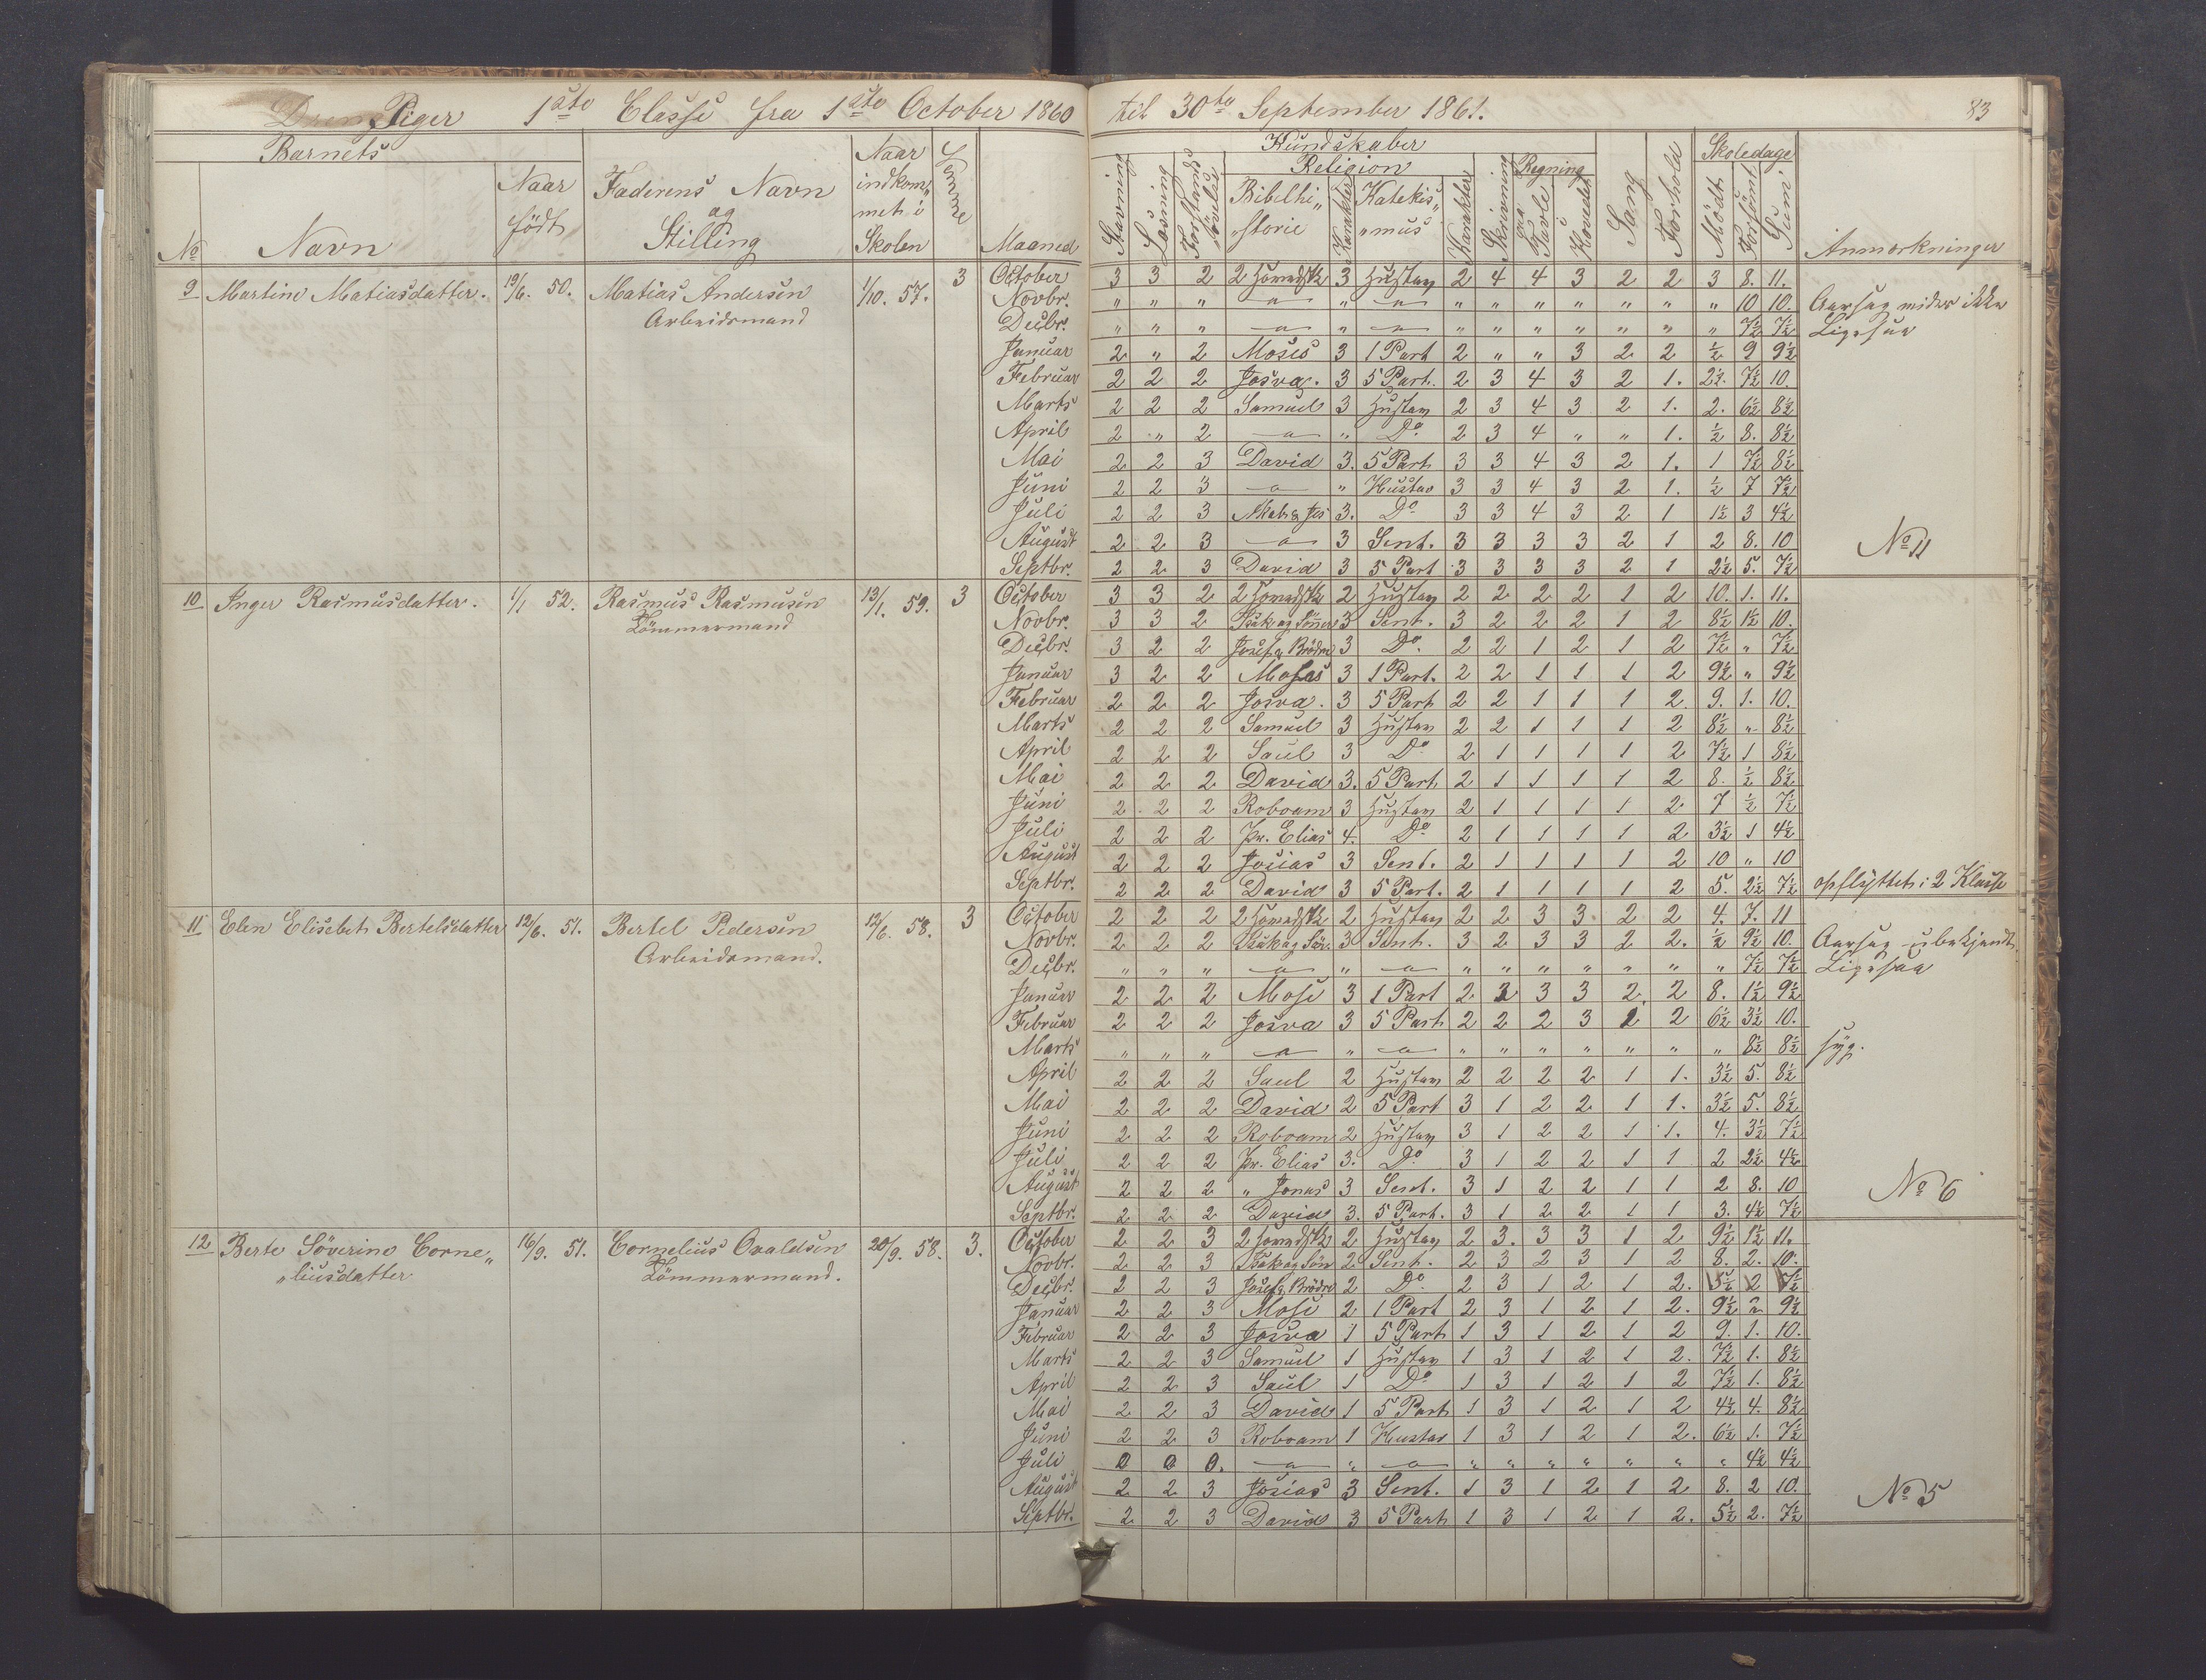 Piger 1ste Classe fra 1ste October 1860 til 30te September 1861. 83
Barnets
No Navn Naar födt Faderens Navn og Stilling Naar indkommet i Skolen Evne Maaned
Kundskaber
Stavning Læsning Forstands Øvelse Religion Bibelhi„ „storie Karakter Katekis„ „mus Karakter Skrivning Regning paa Tavle i Hovedet Sang Forhold Skoledage Mödt Forsömt Sum Anmærkninger
9 Martine Matiasdatter. 19/6. 50. Matias Andersen Arbeidsmand 1/10. 57. 3
October 3 3 2 3 Hustav 2 4 4 3 2 2 3 8. 11.
Novbr. „ „ „ — „ — „ „ „ „ „ „ „ 10 10. Aarsag mides ikke
Decbr. „ „ „ — „ — „ „ „ „ „ „ „ 7½ 7½ Ligesaa
Januar 2 „ 2 Moses 3 1 Part 2 „ „ 3 2 2 ½ 9 9½
Februar 2 2 2 Josva. 3 5 Part. 2 3 4 3 2 1. 2½. 7½ 10.
Marts 2 2 2 Samuel 3 Hustav 2 3 4 3 2 1. 2. 6½ 8½
April 2 „ 2 — „ Do 2 3 4 „ „ 1. ½ 8. 8½
Mai 2 2 3 David 3. 5 Part 3 3 4 3 2 1. 1 7½ 8½
Juni 2 2 3 — „ Hustav 3 3 4 3 2 1. ½ 7 7½
Juli 2 2 3 3. Do 3 3 4 3 2 1 1½ 3 4½
August 2 2 3 — 3 Sent. 3 3 3 3 2 1 2 8. 10 No 11
Septbr. 2 2 3 David 3 5 Part 3 3 3 3 2 1 2½ 5. 7½
10 Inger Rasmusdatter. 1/1 52. Rasmus Rasmusen Tömmermand 13/1. 59. 3
October 3 3 2 2 Hustav 2 2 2 2 1 2 10. 1. 11.
Novbr. 3 3 2 Isak og Sönner 3 Sent. 3 2 2 2 1 2 8½ 1½ 10.
Decbr. 3 2 2 Josef og Brödre 3 Do. 2 2 1 2 1 2 7½ „ 7½
Januar 3 2 2 Moses 3 1 Part. 2 2 1 1 1 2 9½ „ 9½
Februar 2 2 2 Josva. 3 5 Part 2 2 1 1 1 2. 9. 1. 10.
Marts 2 2 2 Samuel 3 Hustav 2 2 1 1 1 2 8½ „ 8½
April 2 2 2 Saul 3 Do 2 1 1 1 1 2 7½ 1 8½
Mai 2 2 2 David 3. 5 Part 2 1 1 1 1 2 8. ½ 8½
Juni 2 2 2 Roboam 3 Hustav 2 1 1 1 1 2 7 ½ 7½
Juli 2 2 2 Pr. Elias 4. Do 2 1 1 1 1 2 3½ 1 4½
August 2 2 2 Josias 3 Sent. 2 1 1 1 1 2 10 „ 10
Septbr. 2 2 2 David 3 5 Part. 2 1 1 1 1 2 5. 2½ 7½ opflyttet i 2 Klasse
11 Elen Elisebet Bertelsdatter 12/6. 51. Bertel Pedersen Arbeidsmand. 12/6. 58. 3
October 2 2 2 2 Hustav 2 2 3 3 2 2 4. 7. 11
Novbr. 2 2 2 Isak og 3 Sent. 3 2 3 3 2 2. ½ 9½ 10. Aarsag ubekjendt.
Decbr. „ „ „ — „ — „ „ „ „ „ „ „ 7½ 7½ Ligesaa
Januar 2 2 2 Mose 3 1 Part 2 3 3 3 2. 2 8. 1½ 9½
Februar 2 2 2 Josva 3 5 Part 2 2 2 3 2 2 6½ 3½ 10.
Marts „ „ „ — „ — „ „ „ „ „ „ „ 8½ 8½ syg.
April 2 2 2 Saul 2 Hustav 2 2 2 2 1 1. 3½ 5. 8½
Mai 2 2 2 David 2 5 Part 3 1 2 2 1 1. 3½ 5. 8½
Juni 2 2 2 Roboam 2 Hustav 3 1 2 2 1 1. 4. 3½ 7½
Juli 2 2 2 Pr. Elias 3. Do 3 1 2 2 1 1 2 2½ 4½
August 2 2 2 „ Jonas 3 Sent. 3 1 2 2 1 1 2 8. 10 No 6
Septbr. 2 2 2 David 3. 5 Part. 3 1 2 2 1 1 3. 4½ 7½
12 Berte Söverine Corne„ „liusdatter 16/9. 51. Cornelius Ovaldsen Tömmermand. 20/9. 58. 3.
October 2 2 3 2 Hustav 2 3. 3 3 1 2 9½ 1½ 11.
Novbr. 2 2 3 Isak og Sön 2 Sent. 2 3 2 3 1 2 8. 2. 10.
Decbr. 2 2 3 Josef og Brödre 2 Do 2 3 1 2 1 2. 5½ 2 7½
Januar 2 2 3 Mose 2 1 Part 2 3 1 2 1 2. 9½ „ 9½
Februar 2 2 3 Josva 1 5 Part 1 3 1 2 1 2 9. 1. 10.
Marts 2 2 3 Samuel 1 Hustav 1 3 1 2 1 2. 7½ 1. 8½
April 2 2 3 Saul 1 Do 1 3 1 2 1 2 7½ 1. 8½
Mai 2 2 3 David 1 5 Part 1 3 1 2 1 2 4½ 4. 8½
Juni 2 2 3 Roboam 1 Hustav 1 3 1 2 1 2. 6½ 1. 7½
Juli 0 0 0. — „ — „ „ „ „ „ „ „ 4½ 4½
August 2 2 3 Josias 3 Sent. 1 3 1 2 1 2 8. 2 10. No 5
Septbr. 2 2 3 David 3 5 Part 1 3 1 2 1 2. 5½ 2. 7½